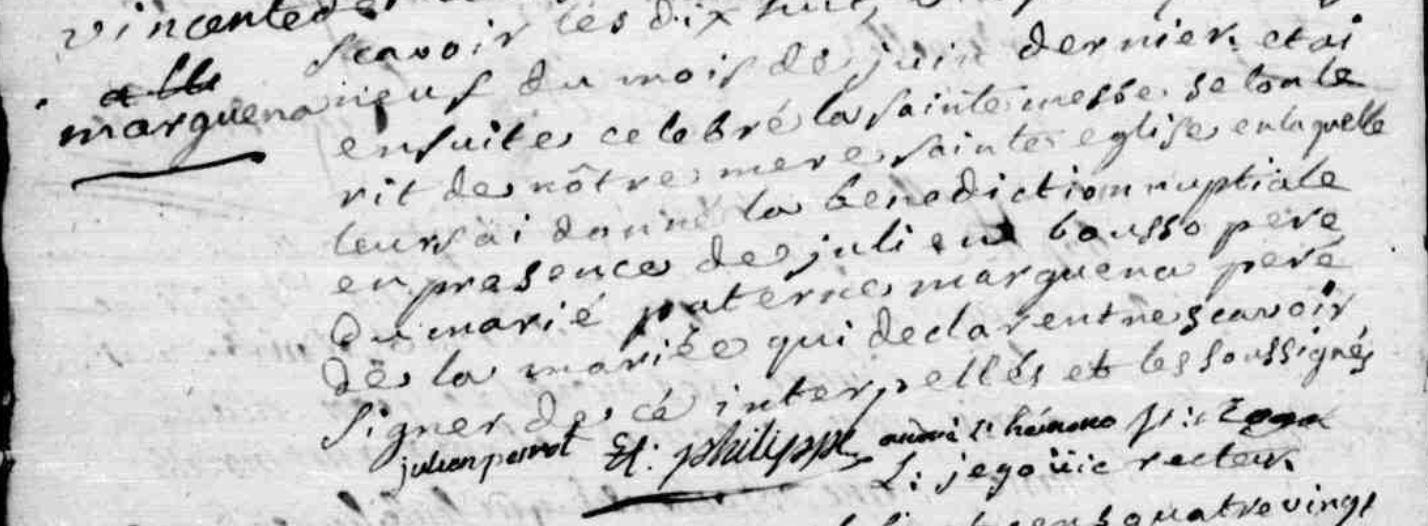 vincente
marguena
scavoir les dix huit
neuf du mois de juin dernier et ai
ensuite celebré la sainte messe selon le
rit de nôtre mere sainte eglise en laquelle
leurs ai donné la benediction nuptiale
en presence de julien bousso pere
du marié paterne marguena pere
de la mariée qui declarent ne scavoir
signer de ce interpellés et les soussignés
julien perrot Et: philippe andré le hénano
L: jegoüic recteur
quatre vingt